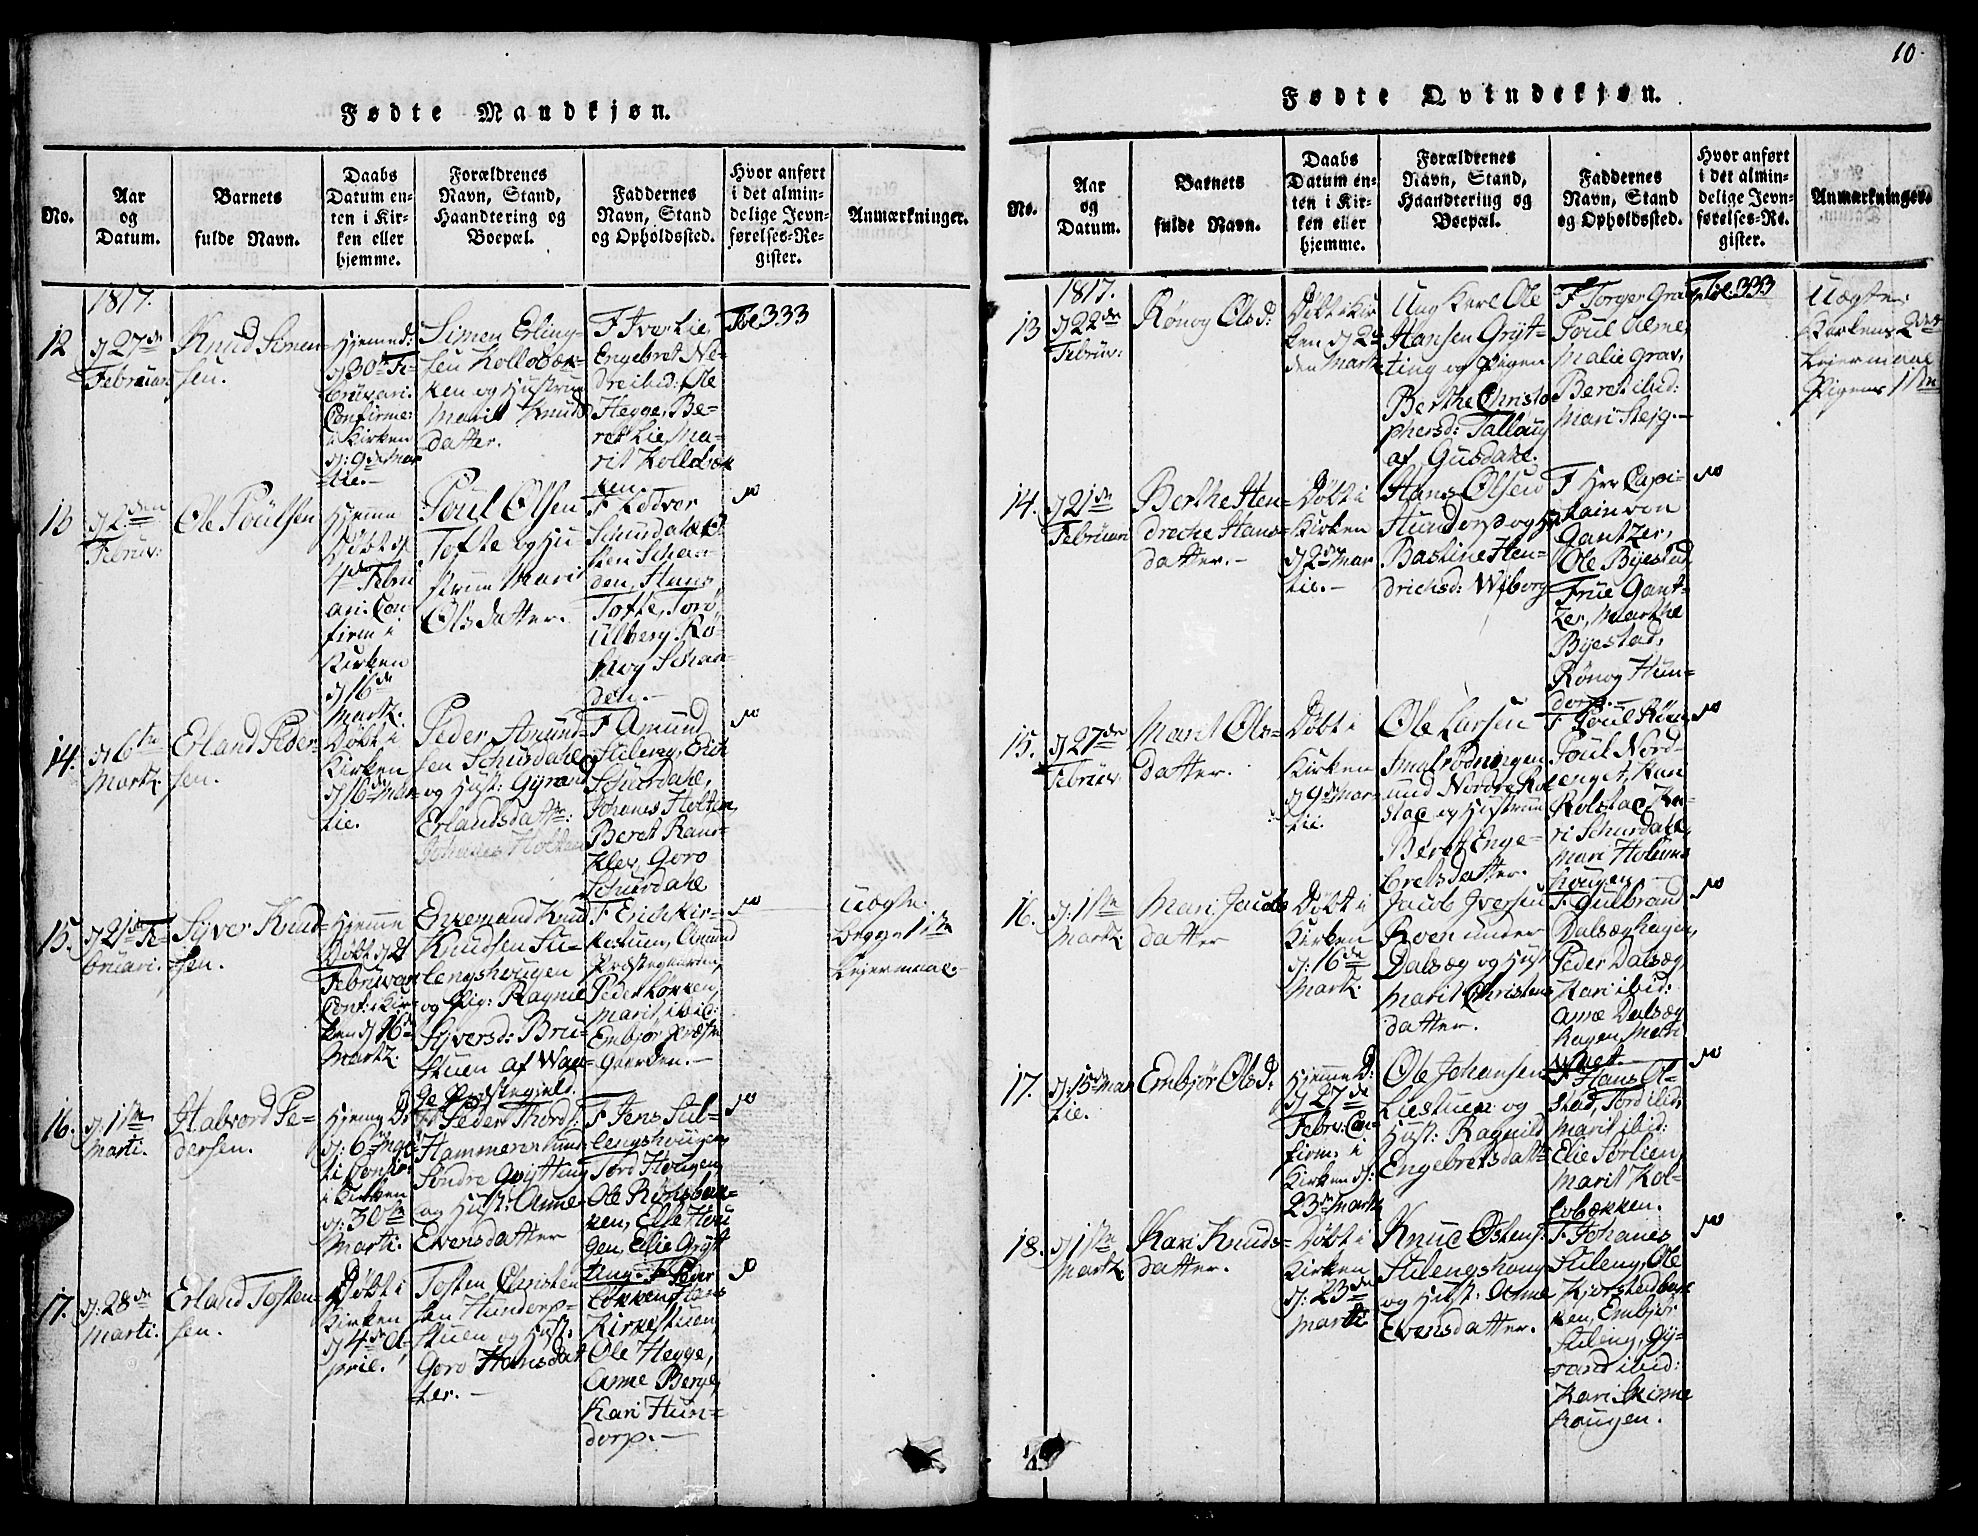 Fødte Mandkjøn.
No.
Aar
og
Datum.
Barnets
fulde Navn.
Daabs
Datum en-
ten i Kir-
ken eller
hjemme.
Forældrenes
Navn, Stand,
Haandtering og
Boepæl.
Faddernes
Navn, Stand
og Opholdssted.
Hvor anført
i det almin-
delige Jevn-
førelses-Re-
gister.
Anmærkninger.
1817.
12
d 27de
Februar
Knud Simen-
sen.
Hjemmed:
d 30te Fe-
bruari.
Confirme:
i Kirken
d: 9de Mar
tie.
Simen Erling-
sen Kollobæk-
ken og Hustrue
Marit Knuds
datter.
F Iver Lie
Engebret Ne-
dreibid: Ole
Hegge, Be-
ret Lie, Ma-
rit Kollobæk
ken.
Fol 333
13
d 2den
Februv:
Ole Poulsen
Hjemme
Døbt d
4de Febru
ari: Con
firm i
Kirken
d 16de
Martz.
Poul Olsen
Tofte og Hu
strue Marit
Olsdatter.
Schurdahl
den, Hans
Tofte, Tore
Ulberg, Rø-
nog Schan-
den.
14.
d 6te
Martz
Erland Peder-
sen.
Døbt i
Kirken
d 16de Mar-
tie.
Peder Amund-
sen Schurdahl
og Hust: Gyrand
Erlandsdatter:
Johannes Holten
F Amund
Stileng, Erich
Schurdahl,
Johanes Holten,
Beret Rans-
klev, Goro
Schurdahl
15.
d 21de Fe-
bruari.
Syver Knud-
sen.
Hjemme
Døbt d 21
Februar
Conf: i Kir-
ken d 16de
Martz.
Knudsen Sti-
lengshougen
og Pig: Ragnild
Syversd: Bru-
stuen af Waa-
ge Præstegield.
F Erich Kir-
kestuen, Amund
Præstegaarden,
Peder Løkken,
Marit ibid:
Embjør Præste
Gaarden.
Uægte.
begges 1ste
Leiermaal.
16.
d: 1ste
Marti.
Halvord Pe-
dersen.
Hjeme D:
d: 6te Mar-
ti Confir:
i Kirken
d: 30te
Marti.
Peder Thords:
Hammeren under
Søndre Grytting
og Hust: Anne
Evensdatter
F Jens Stil-
lengshougen
Tord Hougen
Ole Rønsbak-
ken, Elie Hou
gen, Elie Gryt
ting.
17.
d: 28de
Marti.
Erland Tosten-
sen.
Døbt i
Kirken
d 4de A-
pril.
Tosten Christen
sen Hundorp-
stuen og Hust:
Goro Hansdat
ter.
F Peder
Løkken, Hans
Kirkestuen,
Ole Hegge,
Anne Berge,
Kari Hun-
dorp.
10.
Fødte Qvindekjøn.
No.
Aar
og
Datum.
Barnets
fulde Navn.
Daabs
Datum en-
ten i Kir-
ken eller
hjemme.
Forældrenes
Navn, Stand,
Haandtering og
Boepæl.
Faddernes
Navn, Stand
og Opholdssted.
Hvor anført
i det almin-
delige Jevn-
førelses-Re-
gister.
Anmærkninger.
1817.
13
d 22de
Februv:
Rønog Olsd:
Døbt i Kir
ken d 2
den Martz
Ung Karl Ole
Hansen Gryt-
ting og Pigen
Berthe Christo
phersd: Tallaug
af Gusdahl.
F Torger Grav
Poul Olme,
Malie Grav,
Beret ibid:
Mari Steig.
Fol. 333
Uægte:
Karlens 2det
Leiermaal
Pigens 1ste
14.
d 21de
Februari
Berthe Hen-
dreche Hans-
datter.
Døbt i
Kirken
d 2de Mar
tie.
Hans Olsen
Hundorp og H:
Bastine Hen-
drichsd: Wiborg
F Hrr Capi-
tain von
Gantzer,
Ole Byestad,
Frue Gant-
zer, Marthe
Byestad,
Rønog Hun-
dorp.
15.
d 27de
Februv
Marit Ols-
datter.
Døbt i
Kirken
d 9de Mar-
tii.
Ole Larsen
Smalrødningen
und Nordre Kol
stad og Hustrue
Beret Enge-
bretsdatter.
Poul Nord-
enget,
Kolstad, Ka-
ri Schurdahl,
Mari Holems
hougen
16.
d: 1ste
Martz
Mari Jacobs
datter
Døbt i
Kirken
d: 16de
Mart:
Jacob Iversen
Roen under
Dalsæg og Hust
Marit Christens
datter.
F Gulbrand
Dalsæghagen,
Peder Dalsæg
Kari ibid:
Anne Dalsæg
hagen, Mari
17.
d: 15de Mar
tie.
Embjør Olsd:
Hjemme D:
d 27de
Febru: Con-
firm: i
Kirken d:
23de Martz
Ole Johansen
Liestuen og
Hust: Ragnild
Engebretsdatt
F Hans Ol-
stad, Tord ibid,
Marit ibid:
Elie Sørlien,
Marit Kol-
lobækken.
18.
d 1ste
Martz
Kari Knuds-
datter.
Døbt i
Kirken
d: 23de
Marti
Knud Østens:
Stilengshoug
og Hust: Anne
Evensdatter.
F Johanes
Stileng, Ole
Kjorstadbak
ken, Embjør
Stileng, Gy-
rand ibid:
Kari Skime
hougen.